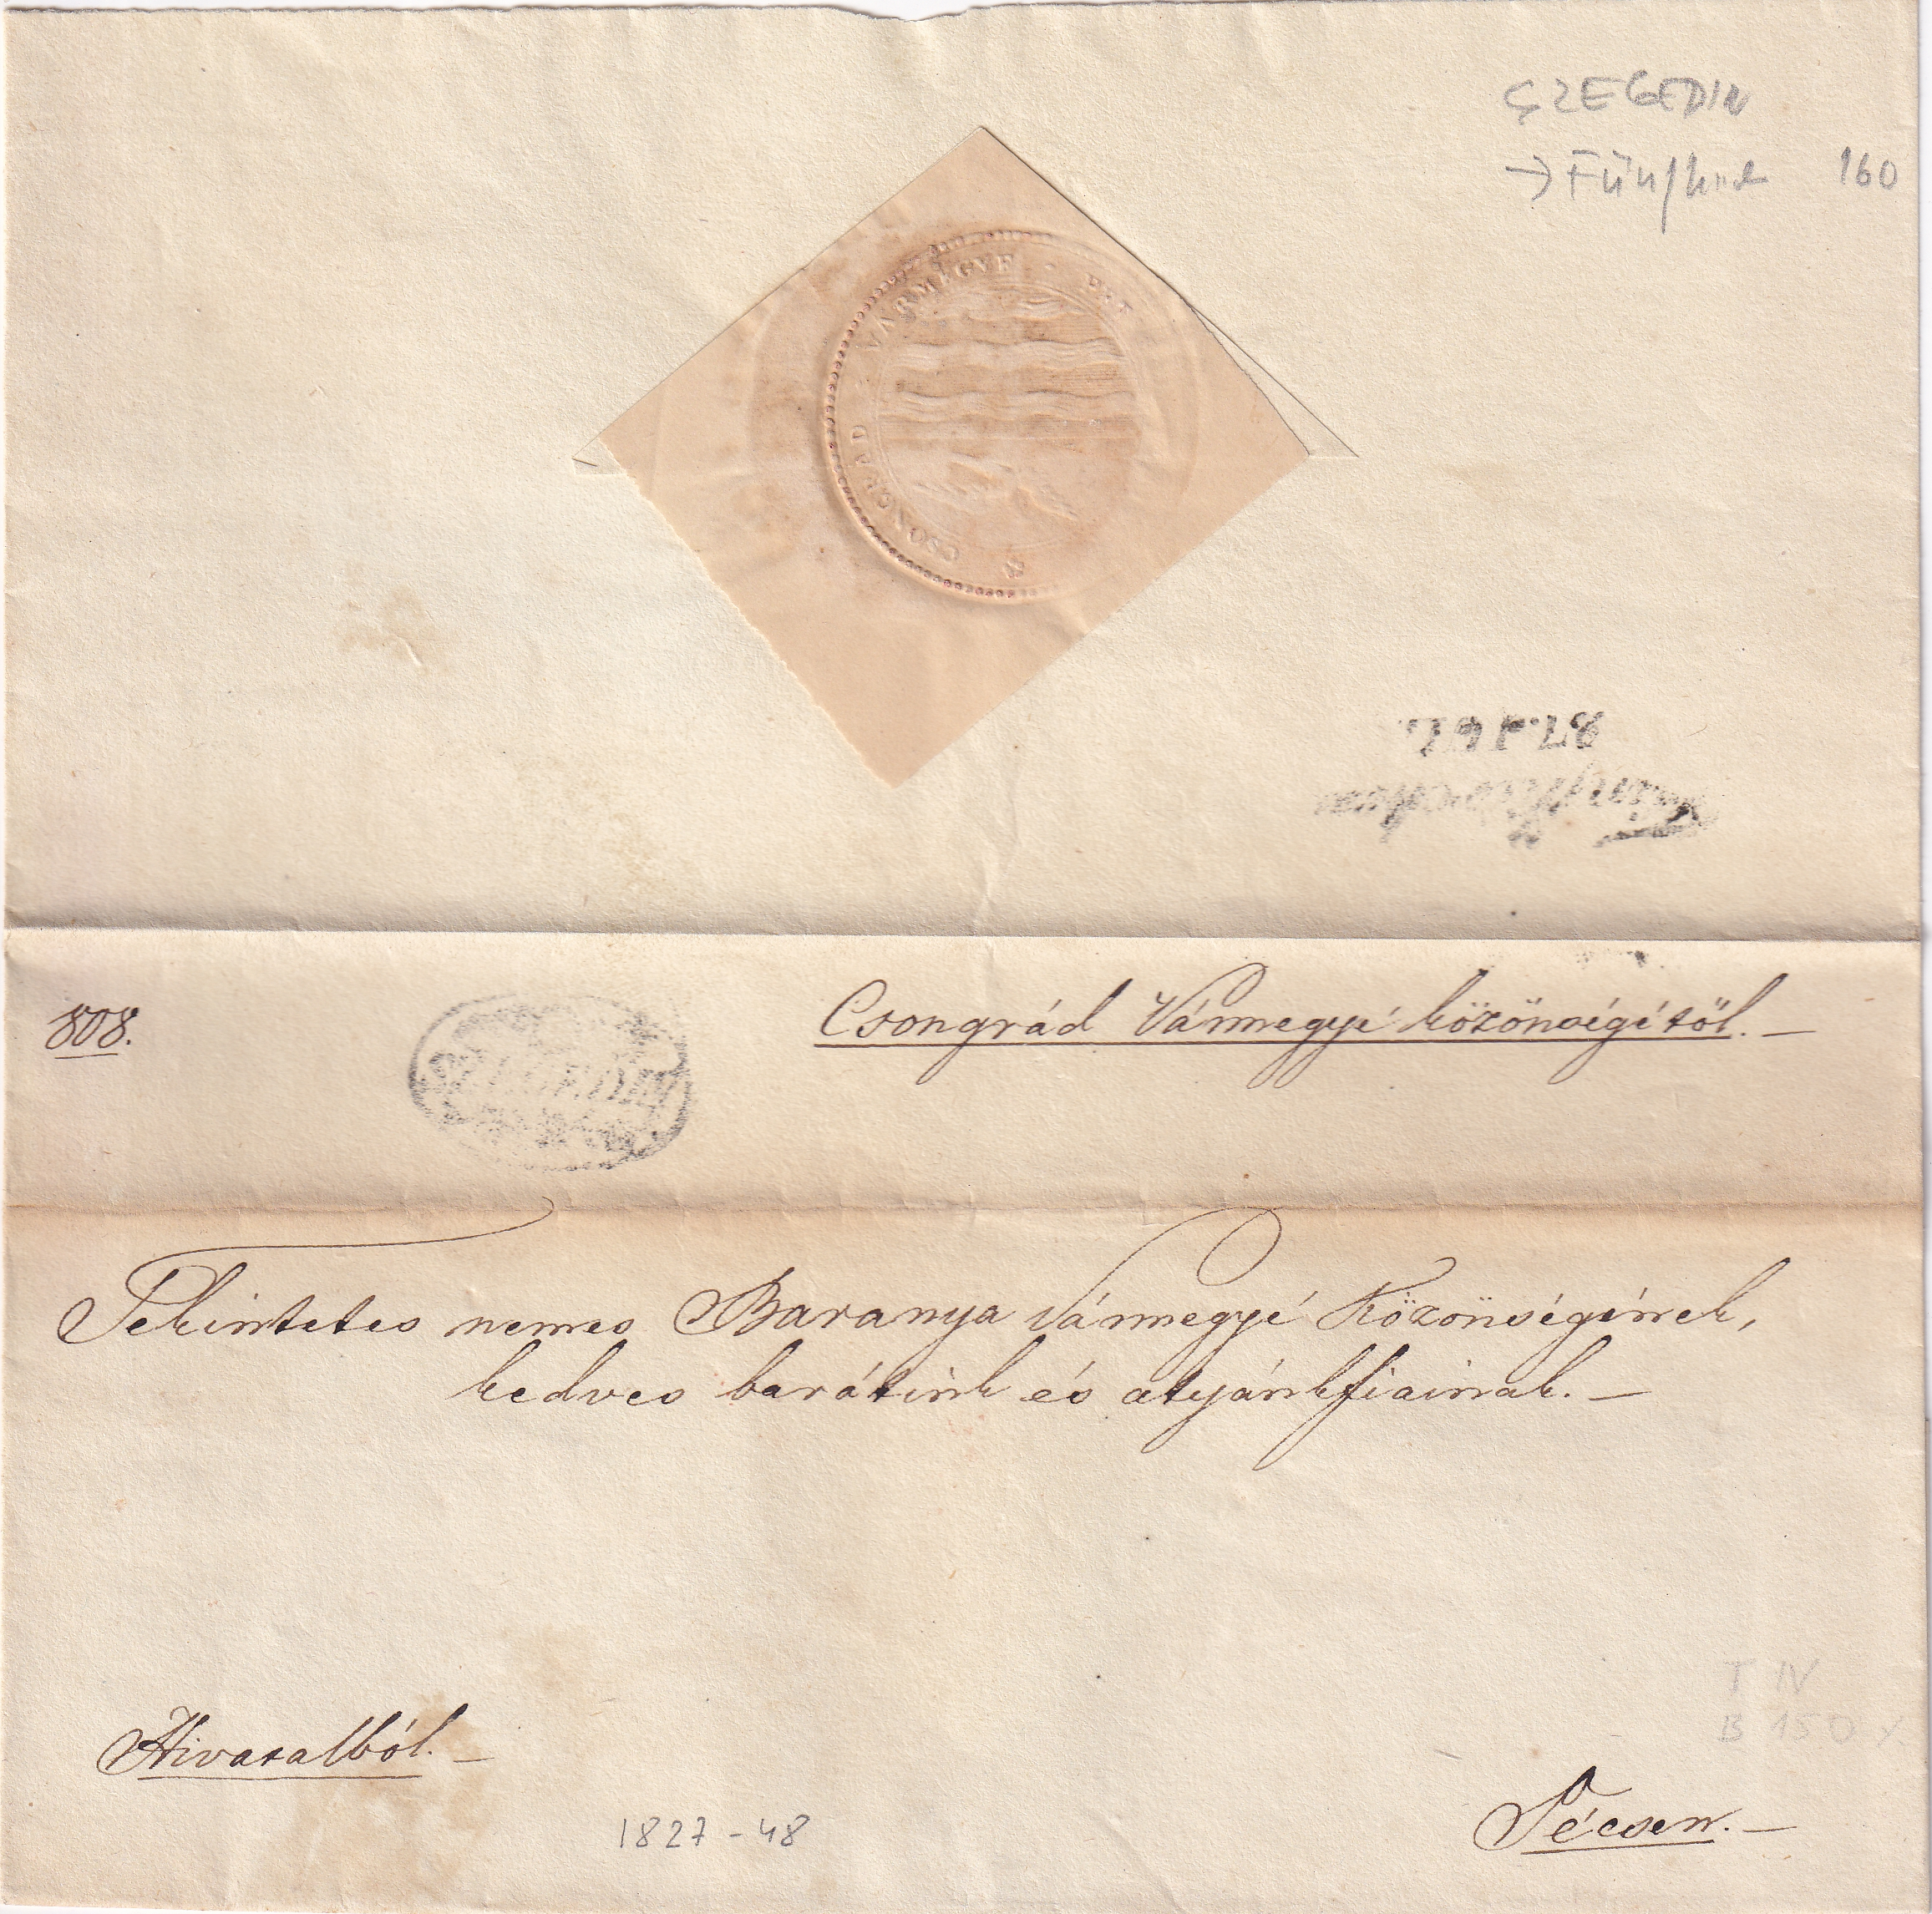 SZEGEDIN
→ Fünfkird 160
CSONGRAD VÁRMEGYE
27. JUL.
Fünfkirchen
808.
Csongrád Vármegye közönségétöl. —
SZEGEDIN
Tekintetes nemes Baranya Vármegye Közönségének,
kedves barátink és atyánkfiainak. —
Hivatalból. —
T IV
B 150
Pécsen. —
1827 - 48